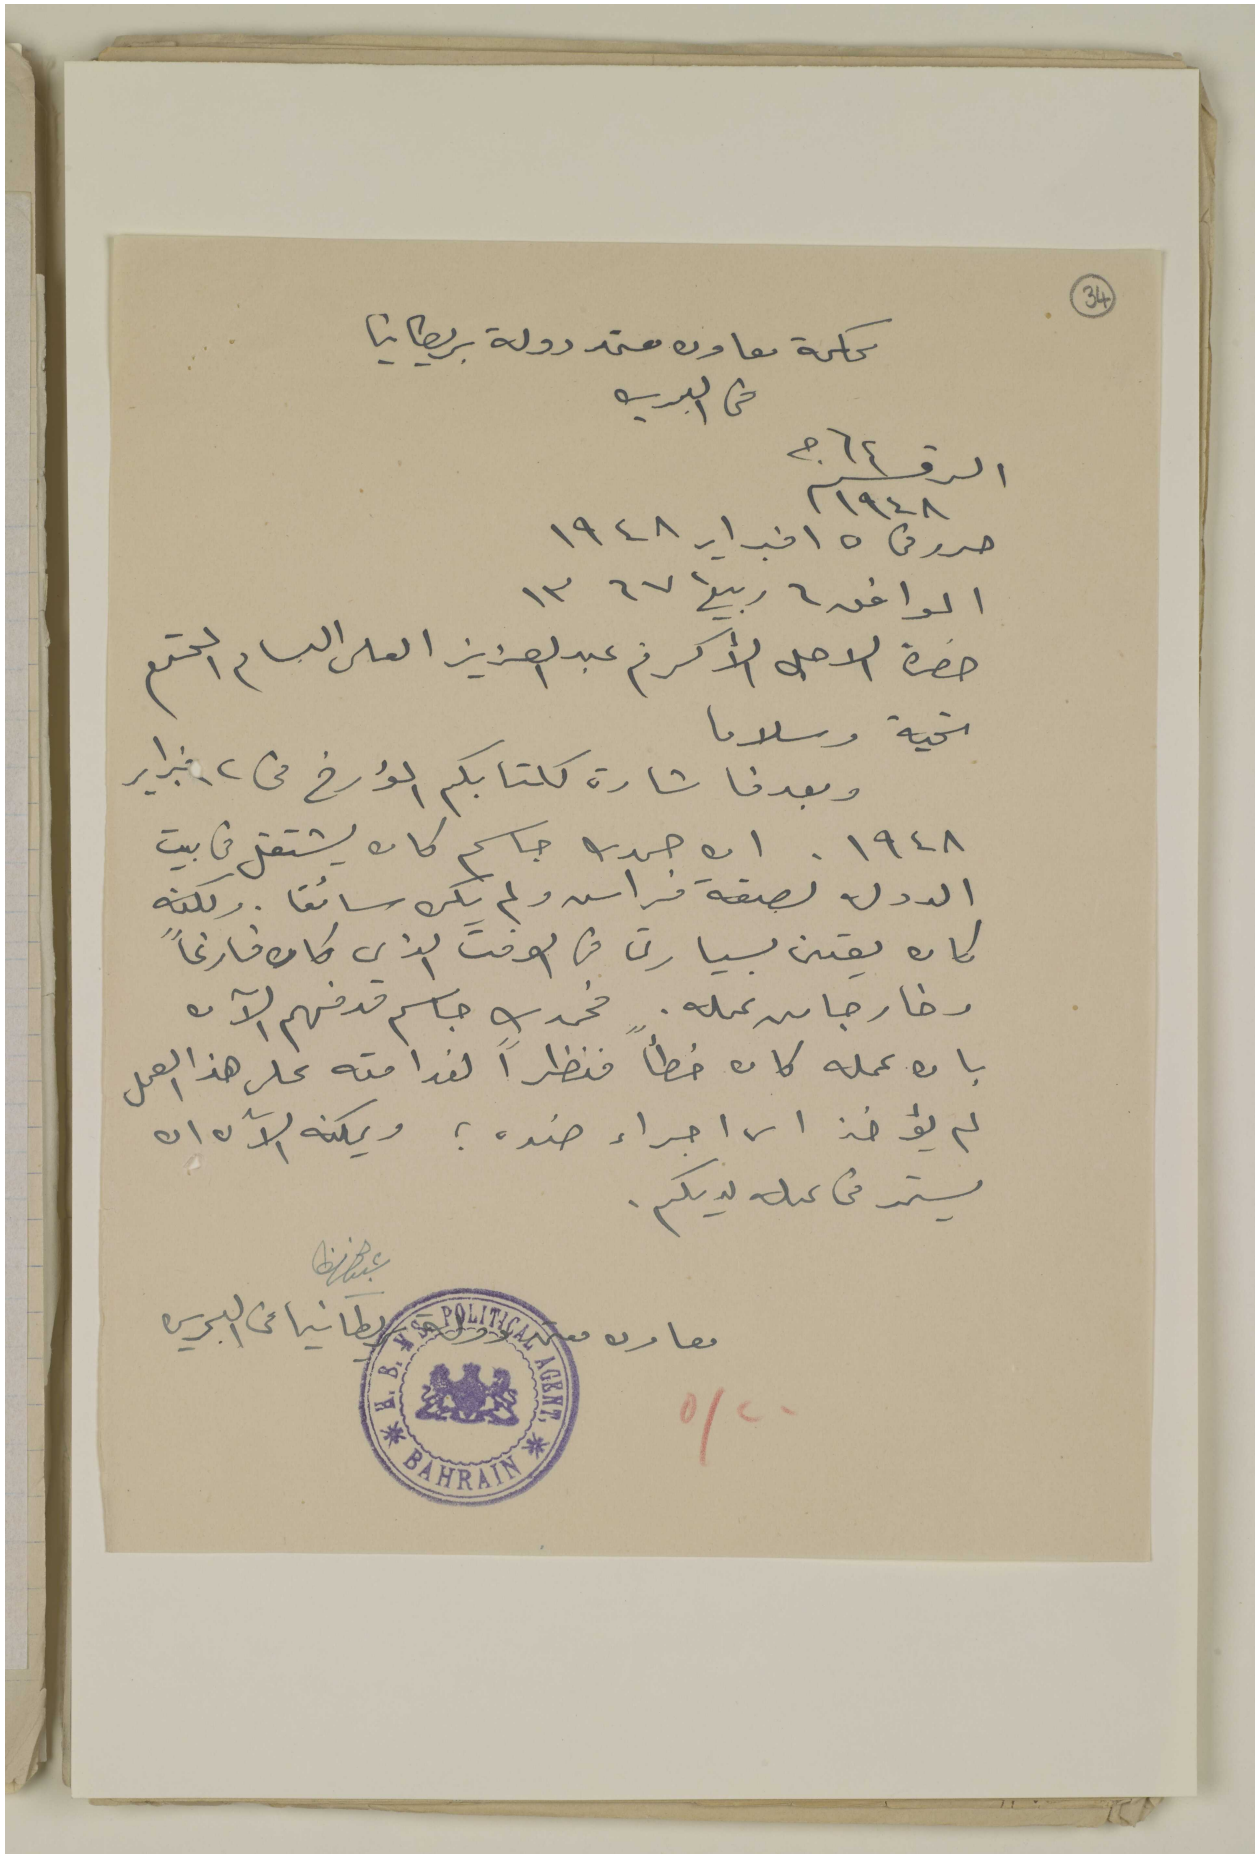 34
محكمة معاون معتمد دولة بريطانيا
في البحرين
الرقم ٦٤ ج
١٩٤٨
حرر في ١٥ فبراير ١٩٤٨
الموافق ٦ ربيع٢ ١٣٦٧
حضرة الاجل الأكرم عبد العزيز العلي البسام المحترم
تحية وسلاما
وبعد فاشارة لكتابكم المؤرخ في ١٢ فبراير
١٩٤٨. ان حمد بن جاسم كان يشتغل في بيت
الدولة بصفة فراس ولم يكن سائقا. ولكنه
كان يعتني بسيارتي في الوقت الذي كان فارغاً
وخارجا من عمله. فحمد بن جاسم قد فهم الآن
بان عمله كان خطأً فنظراً لندامته على هذا العمل
لم يؤخذ اي اجراء ضده؛ ويمكنه الآن ان
يستمر في عمله لديكم.
معاون معتمد دولة بريطانيا في البحرين
H. B. M'S. POLITICAL AGENT,
BAHRAIN
٥/٢٠